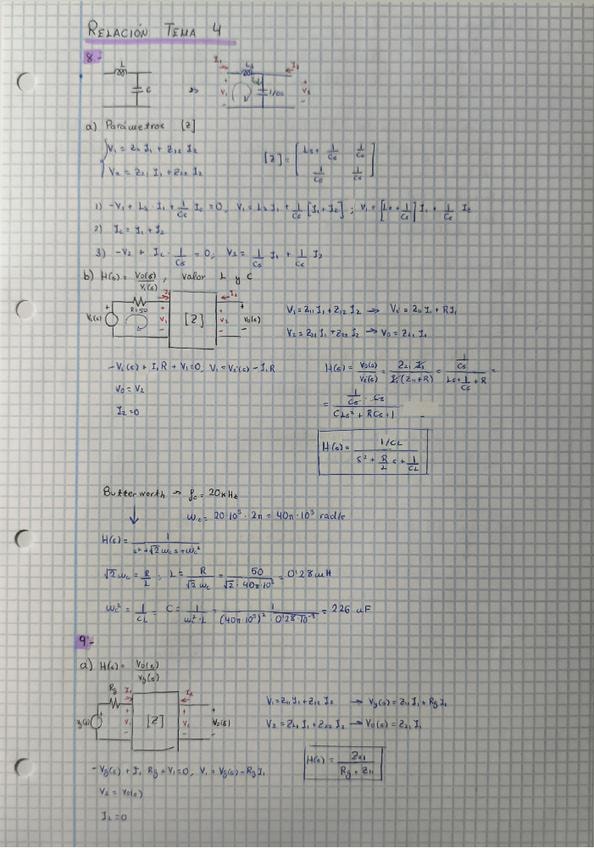 RELACIÓN TEMA 4
8.-
L
C
=>
I₁ Ls I₂
V₁ 1/Cs V₂
a) Parámetros [Z]
V₁ = Z₁₁ I₁ + Z₁₂ I₂
V₂ = Z₂₁ I₁ + Z₂₂ I₂
[Z] = [ Ls + 1/Cs 1/Cs
1/Cs 1/Cs ]
1) -V₁ + Ls · I₁ + 1/Cs Ic = 0, V₁ = Ls I₁ + 1/Cs [I₁ + I₂] ; V₁ = [Ls + 1/Cs] I₁ + 1/Cs I₂
2) Ic = I₁ + I₂
3) -V₂ + Ic · 1/Cs = 0, V₂ = 1/Cs I₁ + 1/Cs I₂
b) H(s) = Vo(s)/Vi(s), valor L y C
R=50 I₁ I₂
Vi(s) V₁ [Z] V₂ Vo(s)
V₁ = Z₁₁ I₁ + Z₁₂ I₂ → Vi = Z₁₁ I₁ + R I₁
V₂ = Z₂₁ I₁ + Z₂₂ I₂ → Vo = Z₂₁ I₁
-Vi(s) + I₁R + V₁ = 0, V₁ = Vi(s) - I₁R
Vo = V₂
I₂ = 0
H(s) = Vo(s)/Vi(s) = Z₂₁ I₁/I₁(Z₁₁ + R) = 1/Cs / Ls + 1/Cs + R =
= 1/Cs · Cs / CLs² + RCs + 1
H(s) = 1/CL / s² + R/L s + 1/CL
Butterworth → fc = 20 kHz
ωc = 20·10³ · 2π = 40π·10³ rad/s
H(s) = 1 / s² + √2 ωc s + ωc²
√2 ωc = R/L ; L = R/√2 ωc = 50/√2 · 40π·10³ = 0'28 mH
ωc² = 1/CL = C = 1/ωc² · L = 1/(40π·10³)² · 0'28·10⁻³ = 226 uF
9.-
a) H(s) = Vo(s)/Vg(s)
Rg I₁ I₂
Vg(s) V₁ [Z] V₂ Vo(s)
V₁ = Z₁₁ I₁ + Z₁₂ I₂ → Vg(s) = Z₁₁ I₁ + Rg I₁
V₂ = Z₂₁ I₁ + Z₂₂ I₂ → Vo(s) = Z₂₁ I₁
-Vg(s) + I₁ Rg + V₁ = 0, V₁ = Vg(s) - Rg I₁
H(s) = Z₂₁ / Rg + Z₁₁
V₂ = Vo(s)
I₂ = 0